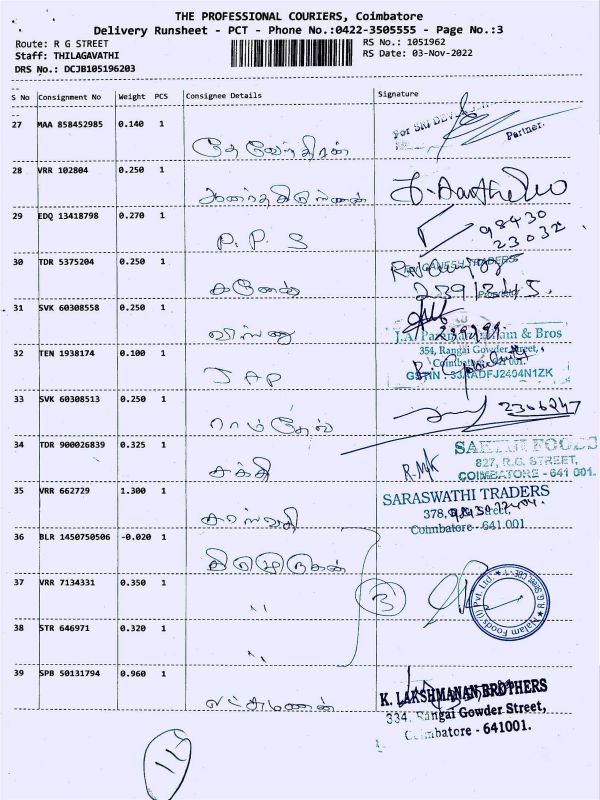 THE PROFESSIONAL COURIERS, Coimbatore
Delivery Runsheet - PCT - Phone No.:0422-3505555 - Page No.:3
Route: R G STREET
RS No.: 1051962
Staff: THILAGAVATHI
RS Date: 03-Nov-2022
DRS No.: DCJB105196203
S No Consignment No Weight PCS Consignee Details Signature
27 MAA 858452985 0.140 1
For SRI DEV
Partner.
தேவேந்திரன்
28 VRR 102804 0.250 1
29 EDQ 13418798 0.270 1
98430
23032
P. P. S
30 TDR 5375204 0.250 1
GANESH TRADERS
கணேஷ்
31 SVK 60308558 0.250 1
விஷ்ணு
J.A. & Bros
354, Rangai Gowder Street,
32 TEN 1938174 0.100 1
Coimbatore 001.
GSTIN : 33AADFJ2404N1ZK
JAP
33 SVK 60308513 0.250 1
2306247
ராம்தேவ்
34 TDR 900026839 0.325 1
SAKTHI FOODS
827, R.G. STREET,
COIMBATORE - 641 001.
R.M/K
சக்தி
35 VRR 662729 1.300 1
SARASWATHI TRADERS
378, Street,
Coimbatore - 641.001
சரஸ்வதி
36 BLR 1450750506 -0.020 1
திருமுருகன்
37 VRR 7134331 0.350 1
"
3
Nalam Foods (I) Pvt. Ltd.
38 STR 646971 0.320 1
"
39 SPB 50131794 0.960 1
K. LAKSHMANAN BROTHERS
334, Rangai Gowder Street,
Coimbatore - 641001.
லட்சுமணன்